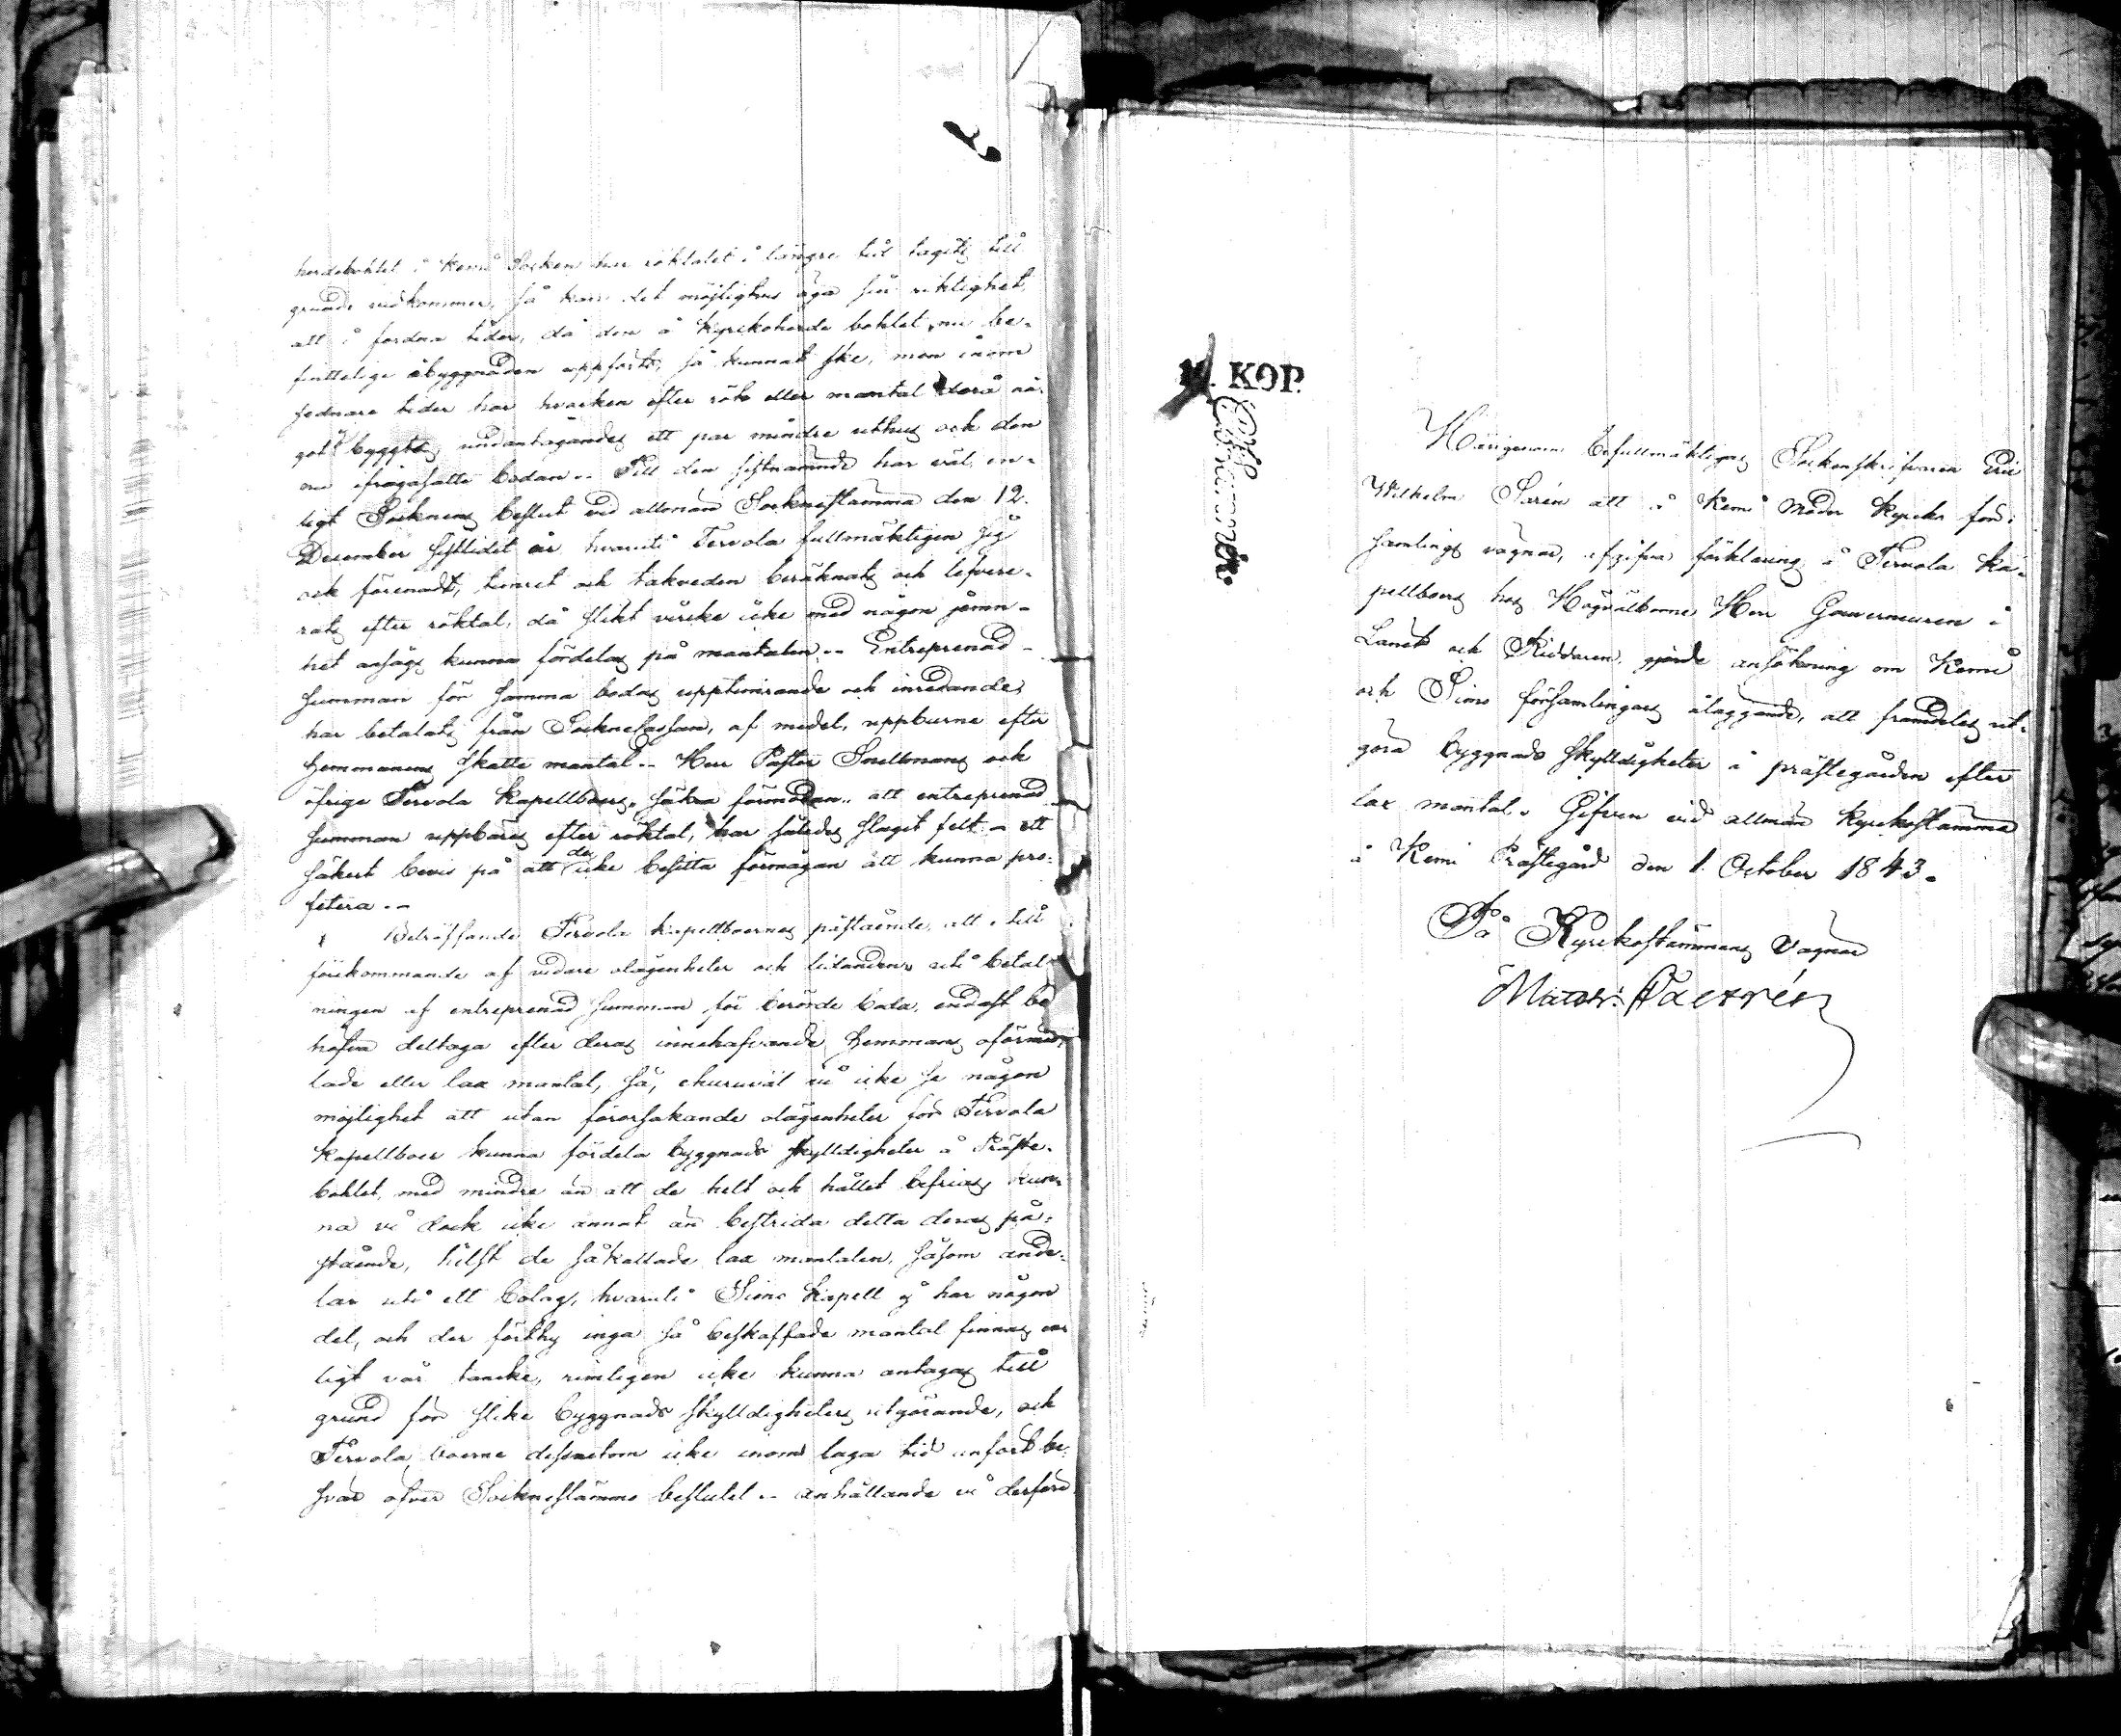 herdebohlet i Kemi Socken har röktalet i längre tid tagits till
grund vidkommer, så kan det möjligtvis äga sin riktighet,
att i fordna tider, då den å Kyrkoherde bohlet nu be-
finttelige åbyggnaden uppförts, så kunnat ske, men inom
sednare tider har hvarken efter rök eller mantal derå nå-
got byggts, undantagandes ett par mindre uthus och den
nu ifrågasatte bodan. Till den sistnämnde har väl, en-
ligt Socknens beslut vid allmän Sockneständ den 12.
December sistlidet år, hvaruti Tervola fullmäktigen sig
ock förenadt, timret och takveden beräknats och lefvere-
rats efter röktal, då slikt virke icke med någon jämn-
het ansågs kunna fördelas på mantalen. Entreprenad-
summan för samma bodas upptimrande och inredande,
har betalats från Sockneåkassan, af medel, uppburne efter
hemmanens skatte mantal. Herr Pastor Snellmans och
öfrige Tervola Kapellboers, säkra förmodan, att entreprenad
summan uppbäres efter röktal, har således slagit felt - ett
säkert bevis på att de icke besitta förmågan att kunna pro-
fitera. -
Beträffande Tervola kapellboernes påstående, att till
förekommande af vidare olägenheter och lidanden, uti betal-
ningen af entreprenad summan för berörde boda, endast be
höfva deltaga efter deras innehafvande hemmans oförmed-
lade eller lax mantal, så, ehuruväl vi icke se någon
möjlighet att utan förorsakande olägenheter för Tervola
Kapellboer kunna fördela byggnads skylldigheter å Präste-
bohlet, med mindre än att de helt och hållet befrias, kun-
na vi dock icke annat än bestrida detta deras på-
stående, hälst de såkallade lax mantalen, såsom ande-
lar uti ett bolag, hvaruti Simo Kapell ej har någon
del, och der förthy inga så beskaffade mantal finnas, en-
ligt vår tanke, rimligen icke kunna antagas till
grund för slike byggnads skylldigheters utgörande, och
Tervola boerne dessutom icke inom laga tid anfört be-
svär öfver Socknestämmo beslutet. - anhållande vi derföre
KOP.
Härigenom befullmäktigas Sockenskrifvaren Eric
Wilhelm Sarén att å Kemi Moder Kyrko för-
samlings vägnar, afgifva förklaring å Tervola Ka-
pellboers hos Högvälborne Herr Gouverneuren i
Länet och Riddaren gjorde ansökning om Kemi
och Simo församlingars åläggande, att framdeles ut-
göra byggnads skylldigheter å prästegården efter
lax mantal. Gifven vid allmän Kyrkostämma
å Kemi Prästegård den 1. October 1843.
På Kyrkostämmans vägnar